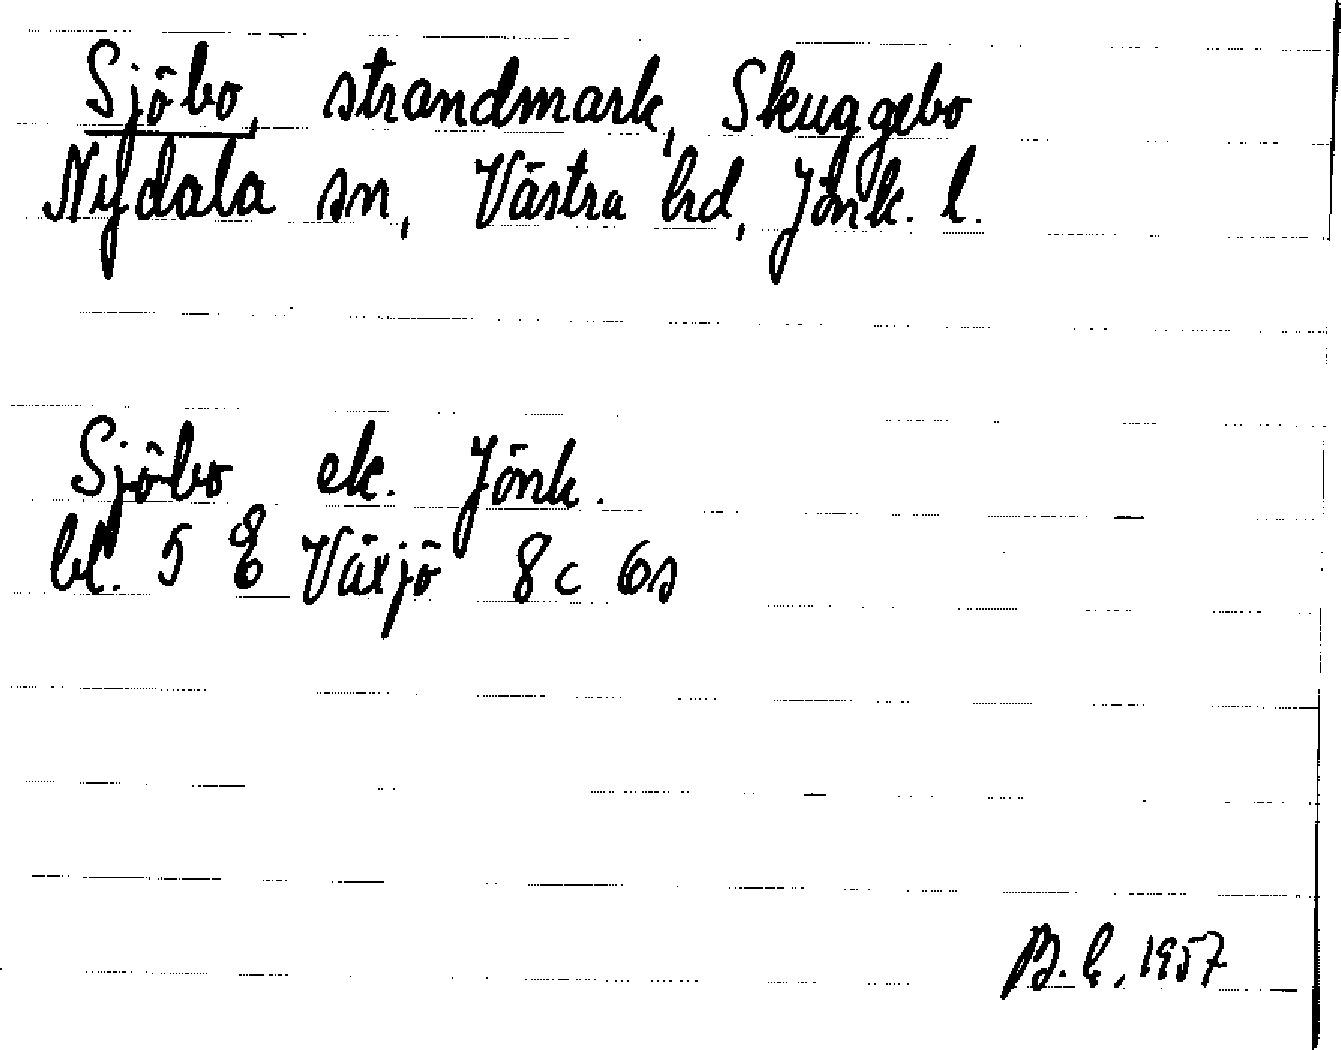 Sjöbo, strandmark, Skuggebo
Nydala sn, Västra hd, Jönk. l.
Sjöbo ek. Jönk.
bl. 5 E Växjö 8c 6s
B.E. 1957